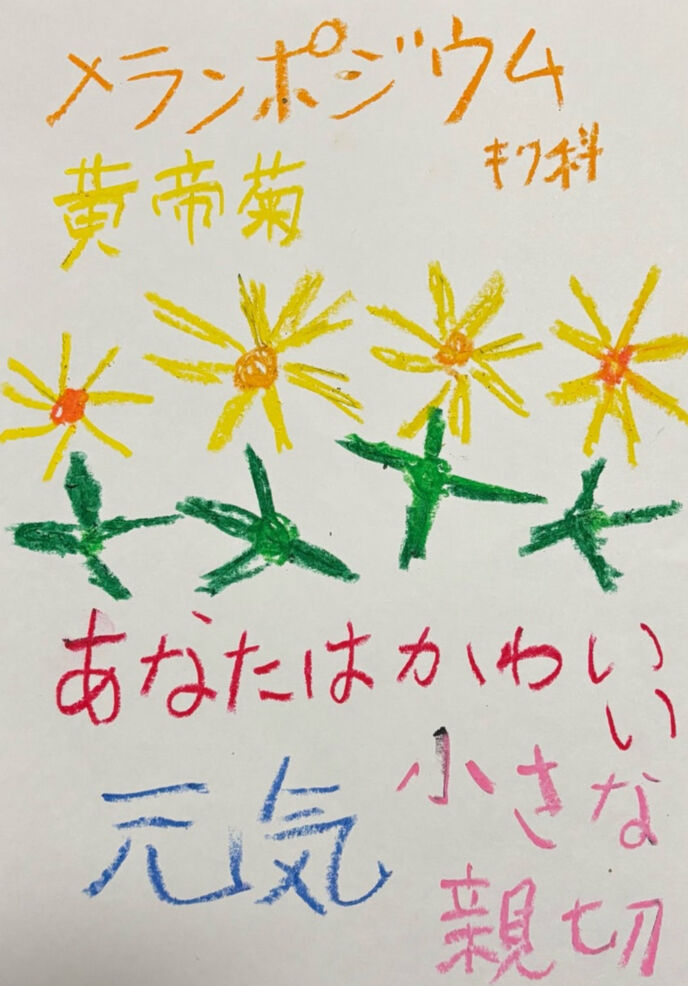 メランポジウム
キク科
黄帝菊
あなたはかわいい
小さな
元気
親切